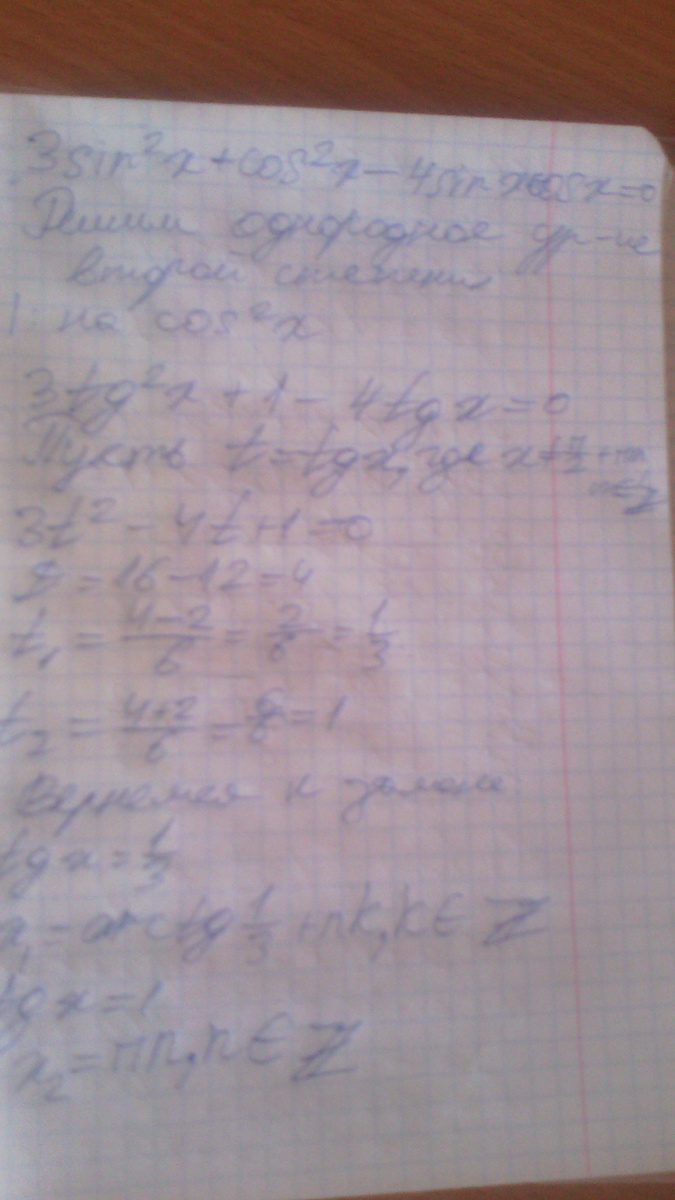 3sin²x+cos²x-4sinxcosx=0
Решим однородное ур-ие
второй степени
: на cos²x
3tg²x+1-4tgx=0
Пусть t=tgx, где x≠π/2+πn
n∈Z
3t²-4t+1=0
D=16-12=4
t₁=(4-2)/6=2/6=1/3
t₂=(4+2)/6=6/6=1
Вернемся к замене
tgx=1/3
x₁=arctg1/3+πk, k∈Z
tgx=1
x₂=πn, n∈Z